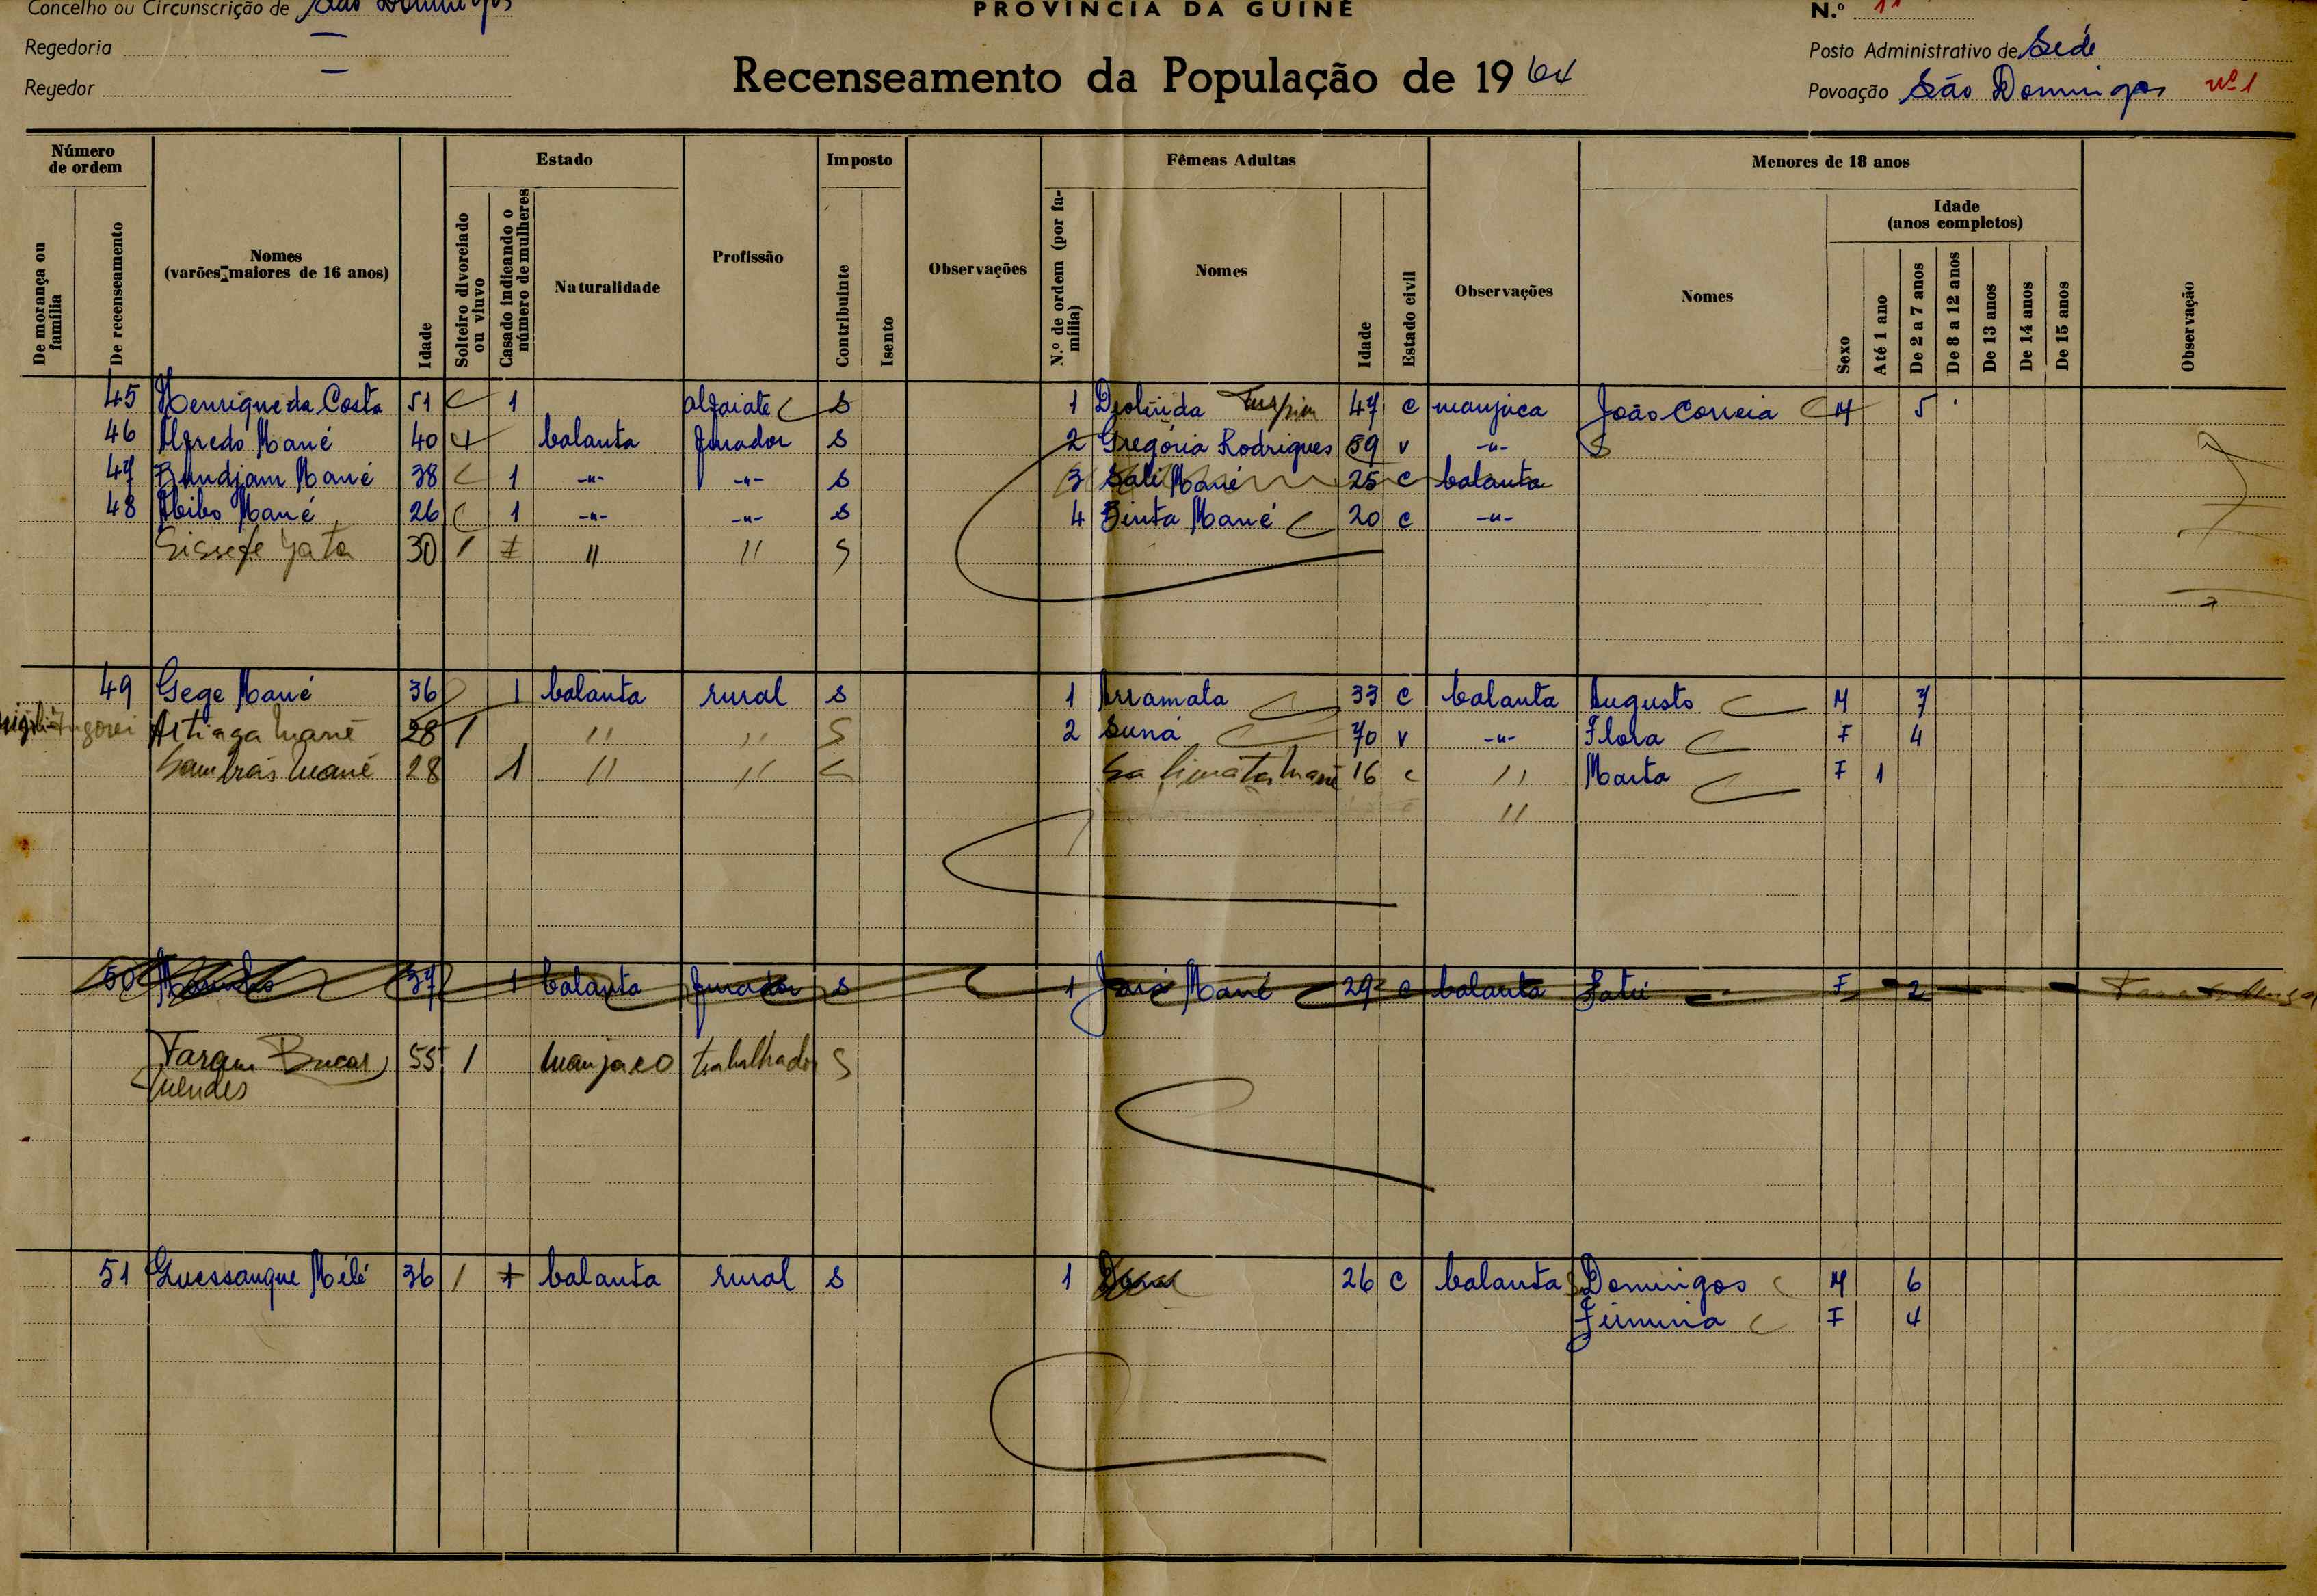 Concelho ou Circunscrição de São Domingos
PROVÍNCIA DA GUINÉ
N.º 11
Regedoria —
Posto Administrativo de Sede
Recenseamento da População de 1964
Regedor —
Povoação São Domingos nº 1
Número de ordem
De morança ou família
De recenseamento
Nomes (varões maiores de 16 anos)
Idade
Estado
Solteiro divorciado ou viuvo
Casado indicando o número de mulheres
Naturalidade
Profissão
Imposto
Contribuinte
Isento
Observações
Fêmeas Adultas
N.º de ordem (por família)
Nomes
Idade
Estado civil
Observações
Menores de 18 anos
Nomes
Sexo
Idade (anos completos)
Até 1 ano
De 2 a 7 anos
De 8 a 12 anos
De 13 anos
De 14 anos
De 15 anos
Observação
45 Henrique da Costa 51 1 alfaiate S 1 47 c manjaca João Correia M 5
46 Alfredo Mané 40 balanta jurador S 2 Gregória Rodrigues 59 v -"-
47 Bundjam Mané 38 1 -"- -"- S 3 Sali Mané 25 c balanta
48 Abibo Mané 26 1 -"- -"- S 4 Binta Mané 20 c -"-
30 / " " S
49 Gege Mané 36 1 balanta rural S 1 Arramata 33 c balanta Augusto M 7
Mané 28 / " " S 2 Suná 70 v -"- Flora F 4
Mané 28 1 " " S Mané 16 c " Marta F 1
"
50 37 1 balanta jurador S 1 Mané 29 c balanta Fatú F 2
55 / manjaco trabalhador S
Mendes
51 Guessangue Mélé 36 / 1 balanta rural S 1 26 c balanta Domingos M 6
Firmina F 4